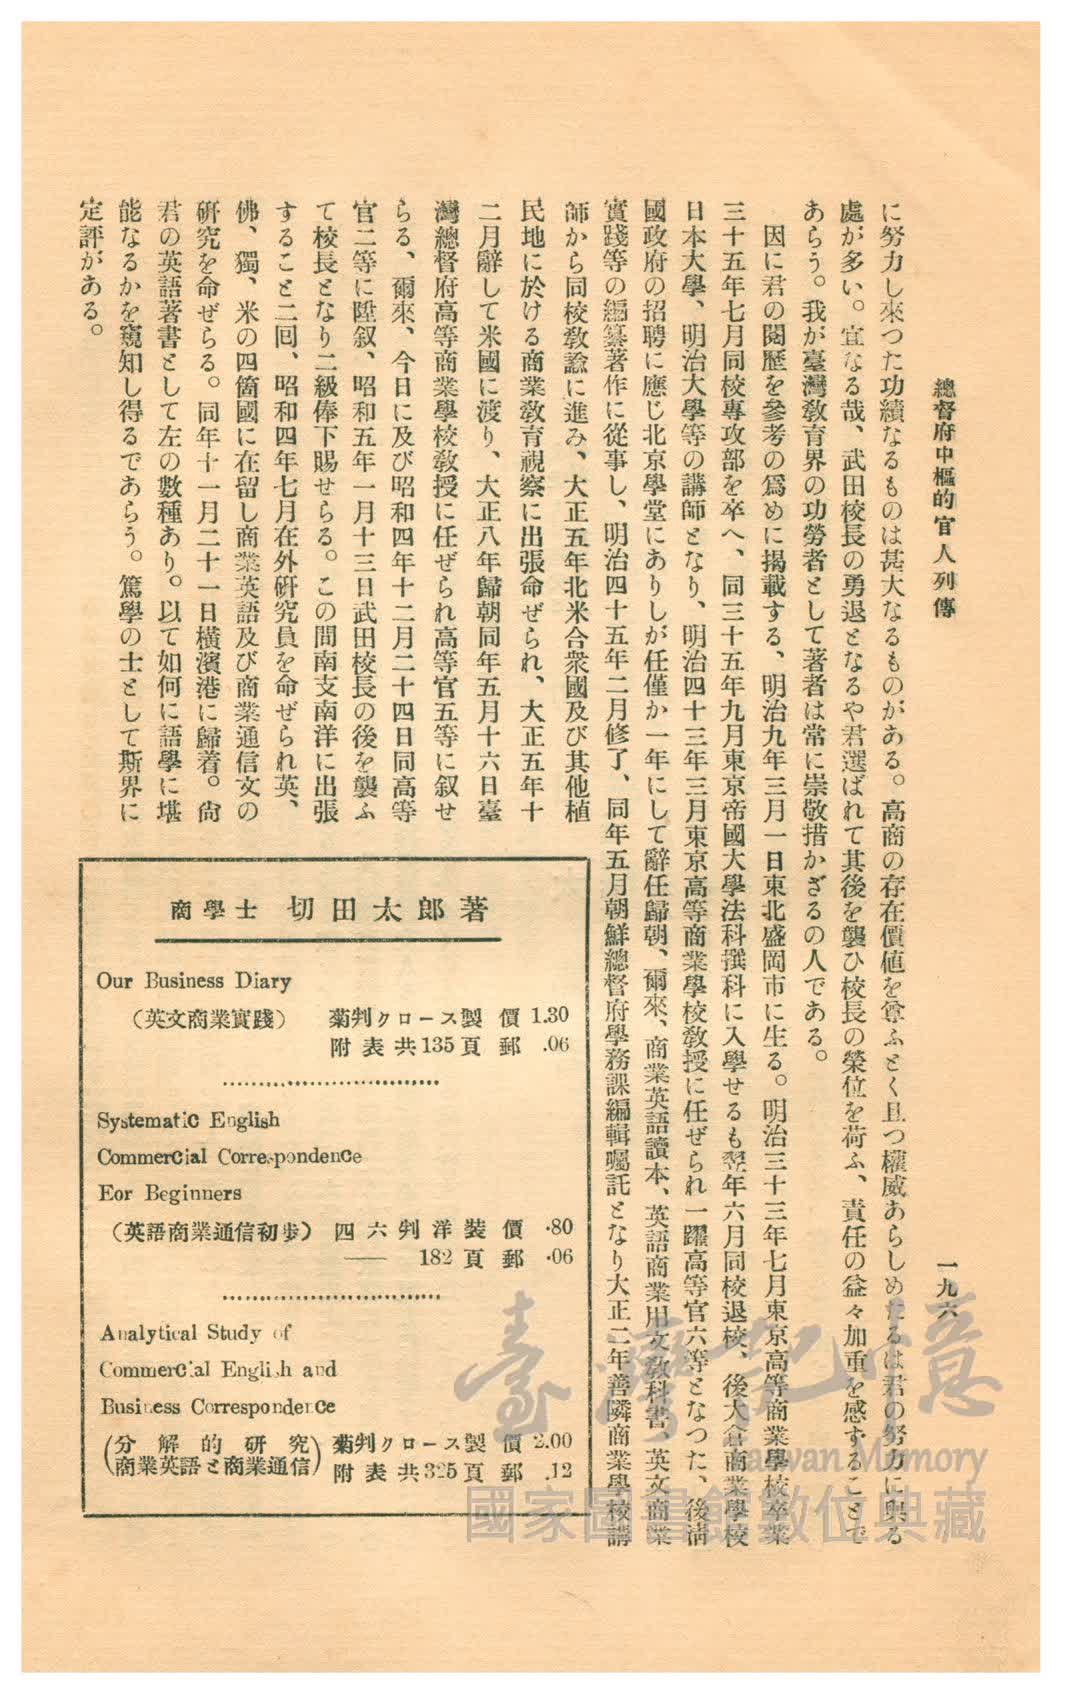 總督府中樞的官人列傳
一九六
に努力し來つた功績なるものは甚大なるものがある。高商の存在價値を尊ふとく且つ權威あらしめたるは君の努力に與る
處が多い。宜なる哉、武田校長の勇退となるや君選ばれて其後を襲ひ校長の榮位を荷ふ、責任の益々加重を感ずることで
あらう。我が臺灣教育界の功勞者として著者は常に崇敬措かざるの人である。
因に君の閱歷を參考の爲めに揭載する、明治九年三月一日東北盛岡市に生る。明治三十三年七月東京高等商業學校卒業
三十五年七月同校專攻部を卒へ、同三十五年九月東京帝國大學法科撰科に入學せるも翌年六月同校退校、後大倉商業學校
日本大學、明治大學等の講師となり、明治四十三年三月東京高等商業學校教授に任ぜられ一躍高等官六等となつた、後淸
國政府の招聘に應じ北京學堂にありしが任僅か一年にして辭任歸朝、爾來、商業英語讀本、英語商業用文教科書、英文商業
實踐等の編纂著作に從事し、明治四十五年二月修了、同年五月朝鮮總督府學務課編輯囑託となり大正二年善隣商業學校講
師から同校教諭に進み、大正五年北米合衆國及び其他植
民地に於ける商業教育視察に出張命ぜられ、大正五年十
二月辭して米國に渡り、大正八年歸朝同年五月十六日臺
灣總督府高等商業學校教授に任ぜられ高等官五等に叙せ
らる、爾來、今日に及び昭和四年十二月二十四日同高等
官二等に陞叙、昭和五年一月十三日武田校長の後を襲ふ
て校長となり二級俸下賜せらる。この間南支南洋に出張
すること二回、昭和四年七月在外硏究員を命ぜられ英、
佛、獨、米の四箇國に在留し商業英語及び商業通信文の
硏究を命ぜらる。同年十一月二十一日橫濱港に歸着。尙
君の英語著書として左の數種あり。以て如何に語學に堪
能なるかを窺知し得るであらう。篤學の士として斯界に
定評がある。
商學士 切田太郎著
Our Business Diary
(英文商業實踐) 菊判クロース製 價 1.30
附表共135頁 郵 .06
Systematic English
Commercial Correspondence
Eor Beginners
(英語商業通信初步) 四六判洋裝 價 .80
182頁 郵 .06
Analytical Study of
Commercial English and
Business Correspondence
(分解的硏究 商業英語と商業通信) 菊判クロース製 價 2.00
附表共325頁 郵 .12
臺灣記憶
Taiwan Memory
國家圖書館數位典藏